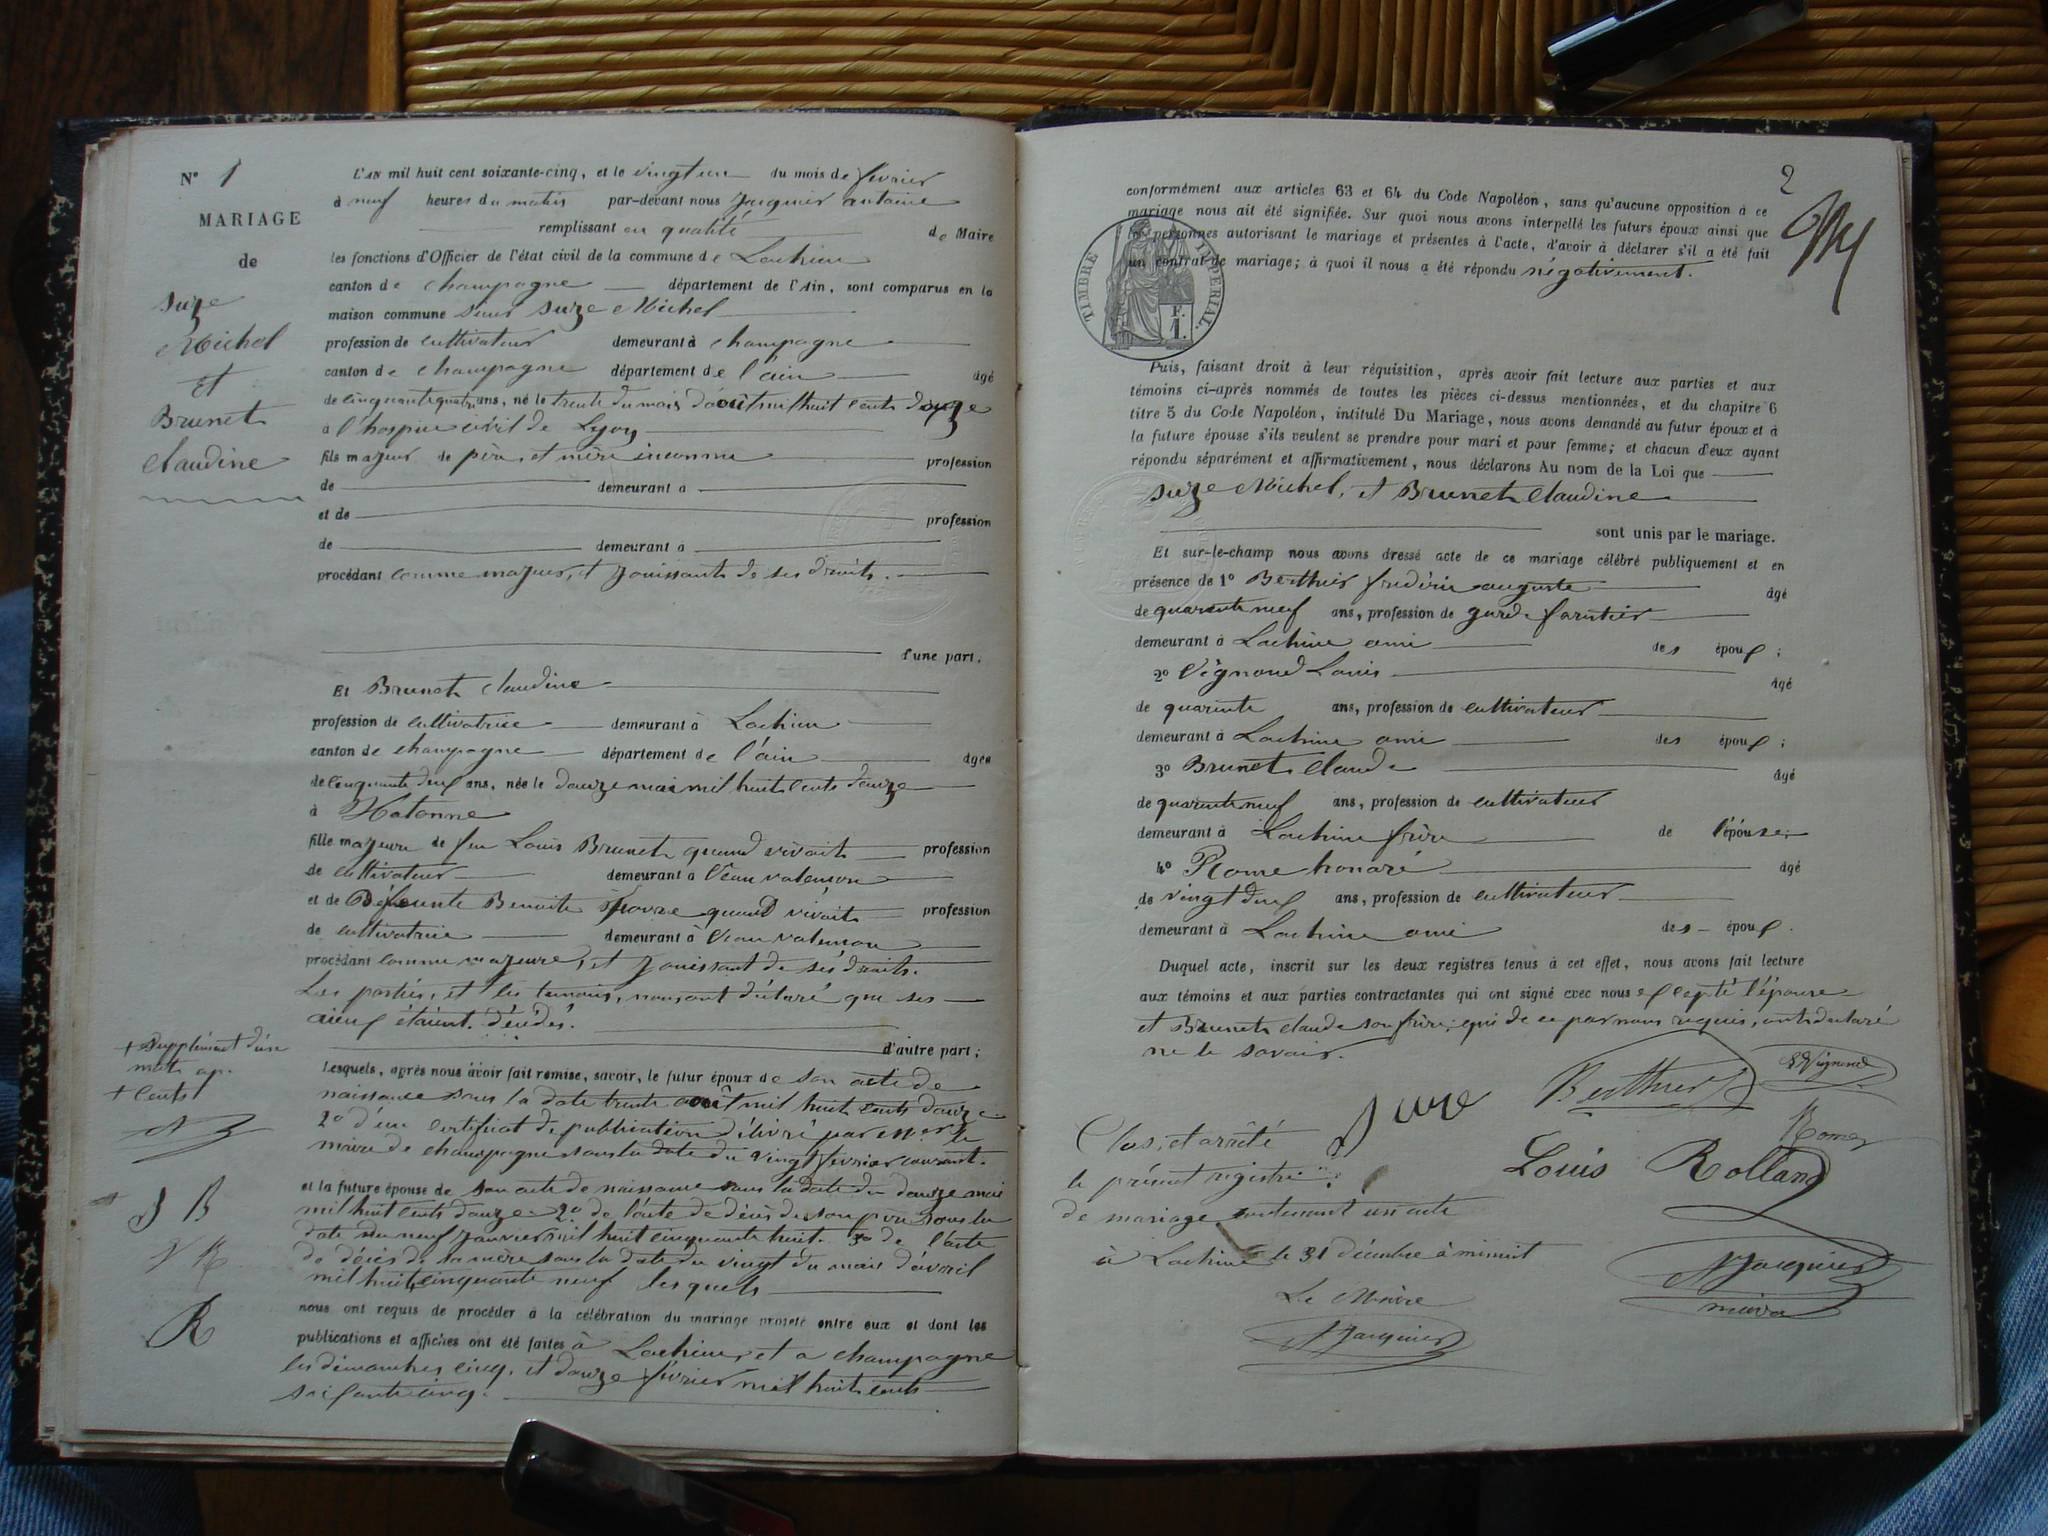 N° 1
MARIAGE
de
Suze
Michel
et
Brunet
Claudine
L'AN mil huit cent soixante-cinq, et le vingt un du mois de février
à neuf heures du matin par-devant nous Jacquier antoine
remplissant en qualité de Maire
les fonctions d'Officier de l'état civil de la commune de Lochieu
canton de champagne département de l'Ain, sont comparus en la
maison commune sieur Suze Michel
profession de cultivateur demeurant à champagne
canton de champagne département de l'ain âgé
de cinquante quatre ans, né le trente du mois d'août mil huit cents douze
à l'hospice civil de Lyon
fils majeur de père et mère inconnu profession
de demeurant à
et de profession
de demeurant à
procédant comme majeur, et jouissant de ses droits.
d'une part.
Et Brunet Claudine
profession de cultivatrice demeurant à Lochieu
canton de champagne département de l'ain âgée
de cinquante deux ans, née le douze mai mil huit cents douze
à Hotonne
fille majeure de feu Louis Brunet quand vivait profession
de cultivateur demeurant à
et de Défeunte Benoite quand vivait profession
de cultivatrice demeurant à
procédant comme majeure, et jouissant de ses droits.
Les parties, et les temoins, nous ont déclaré que ses
aieux étaient décédés.
d'autre part;
+ supplément d'un
mot ap.
+ cents
Lesquels, après nous avoir fait remise, savoir, le futur époux de son acte de
naissance sous la date trente août mil huit cents douze
2° d'un certificat de publication délivré par Mr le
maire de champagne sous la date du vingt février courant.
et la future épouse de son acte de naissance sous la date du douze mai
mil huit cents douze 2° de l'acte de décès de son père sous la
date du neuf janvier mil huit cinquante huit. 3° de l'acte
de décès de sa mère sous la date du vingt du mois d'avril
mil huit cinquante neuf lesquels
J B
V R
R
nous ont requis de procéder à la célébration du mariage projeté entre eux et dont les
publications et affiches ont été faites à Lochieu, et a champagne
les dimanches cinq, et douze février mil huit cents
soixante cinq.
2
conformément aux articles 63 et 64 du Code Napoléon, sans qu'aucune opposition à ce
mariage nous ait été signifiée. Sur quoi nous avons interpellé les futurs époux ainsi que
les personnes autorisant le mariage et présentes à l'acte, d'avoir à déclarer s'il a été fait
un contrat de mariage; à quoi il nous a été répondu négativement.
TIMBRE IMPERIAL.
F.
1.
Puis, faisant droit à leur réquisition, après avoir fait lecture aux parties et aux
témoins ci-après nommés de toutes les pièces ci-dessus mentionnées, et du chapitre 6
titre 5 du Code Napoléon, intitulé Du Mariage, nous avons demandé au futur époux et à
la future épouse s'ils veulent se prendre pour mari et pour femme; et chacun d'eux ayant
répondu séparément et affirmativement, nous déclarons Au nom de la Loi que
Suze Michel, et Brunet Claudine
sont unis par le mariage.
Et sur-le-champ nous avons dressé acte de ce mariage célébré publiquement et en
présence de 1° Berthier frédéric auguste âgé
de quarante neuf ans, profession de garde forestier
demeurant à Lochieu ami des époux;
2° Vignand Louis âgé
de quarante ans, profession de cultivateur
demeurant à Lochieu ami des époux;
3° Brunet Claude âgé
de quarante neuf ans, profession de cultivateur
demeurant à Lochieu frère de l'épouse;
4° Rome honoré âgé
de vingt deux ans, profession de cultivateur
demeurant à Lochieu ami des époux.
Duquel acte, inscrit sur les deux registres tenus à cet effet, nous avons fait lecture
aux témoins et aux parties contractantes qui ont signé avec nous excepté l'épouse
et Brunet Claude son frère, qui de ce par nous requis, ont déclaré
ne le savoir.
Suze Berthier Vignand
Rome
Louis Rolland
Clos, et arrêté
le présent registre
de mariage contenant un acte
à Lochieu le 31 décembre à minuit
Le Maire
Jacquier
Jacquier
maire